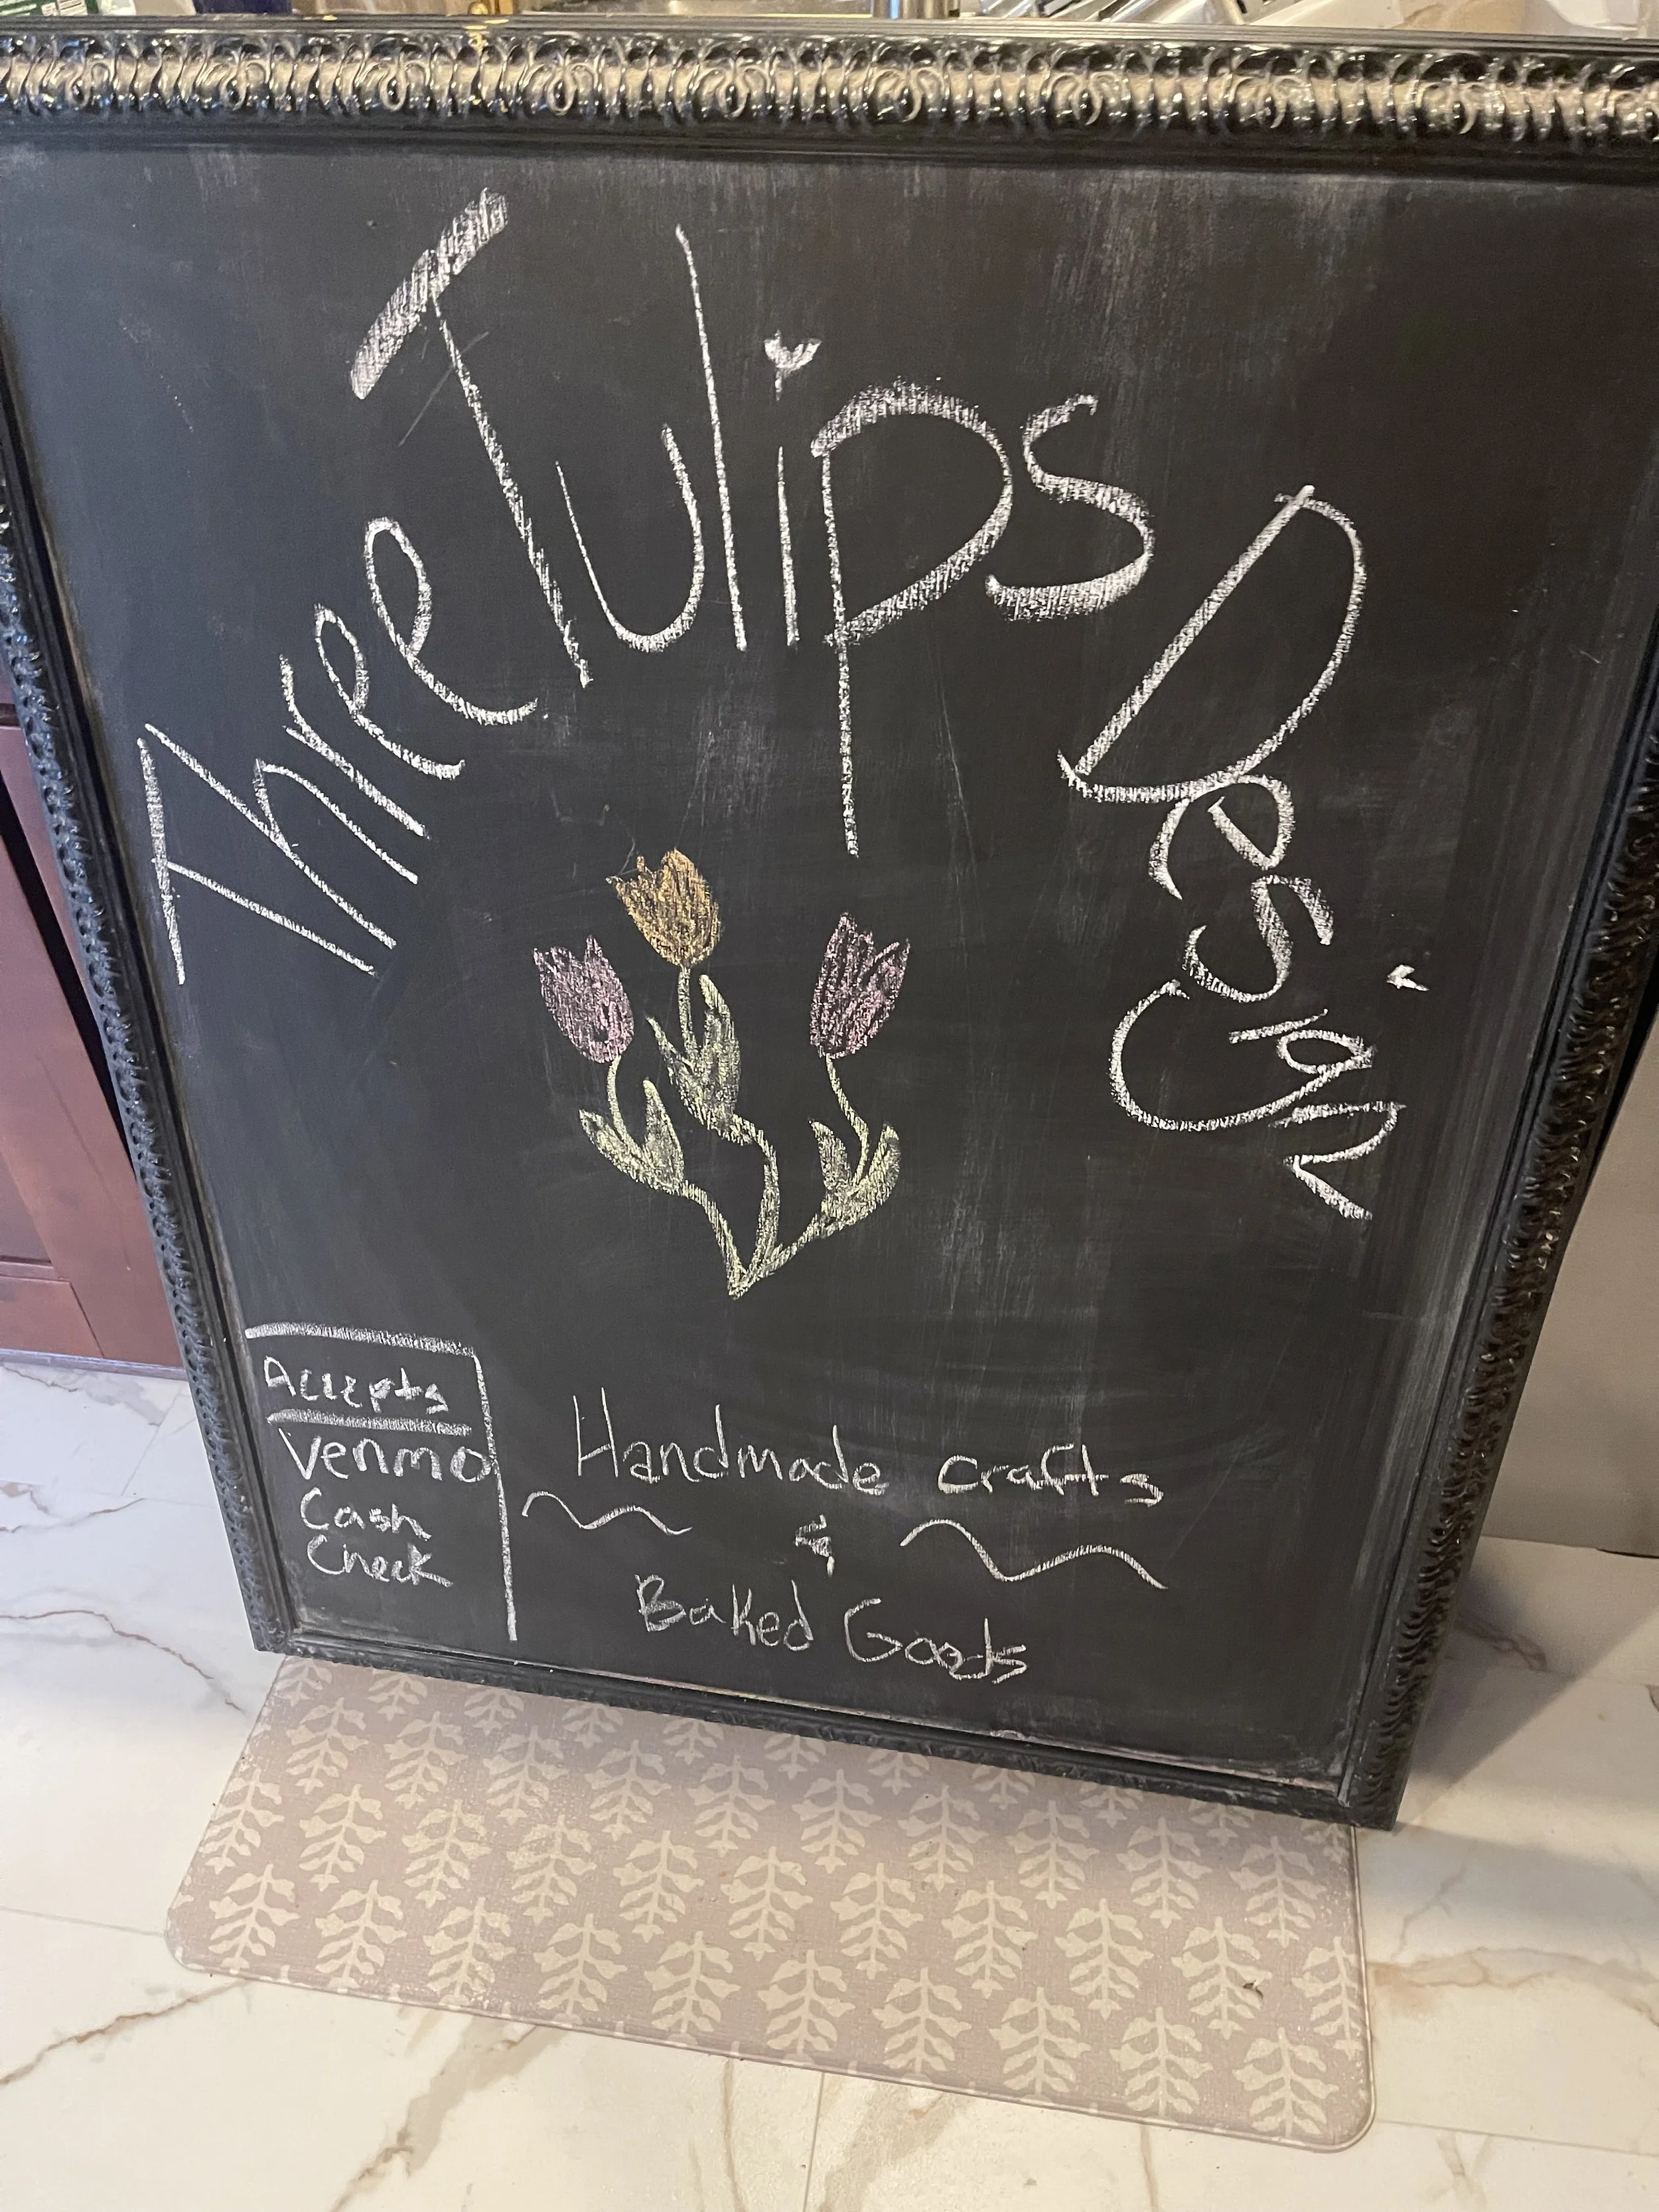 Three Tulips Design
Accepts
Venmo
Cash
Check
Handmade crafts
&
Baked Goods